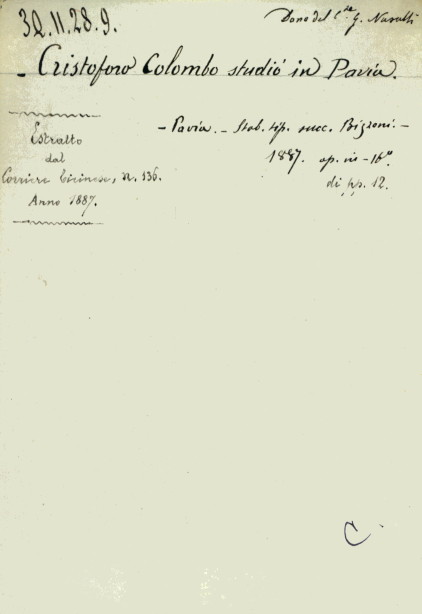 30.11.28.9.
Dono del C.te G. Nasalli
- Cristoforo Colombo studiò in Pavia.
- Pavia. - Stab. tip. succ. Bizzoni. -
1887. op. in - 16°
di pp. 12.
Estratto
dal
Corriere Ticinese, n. 136.
Anno 1887.
C